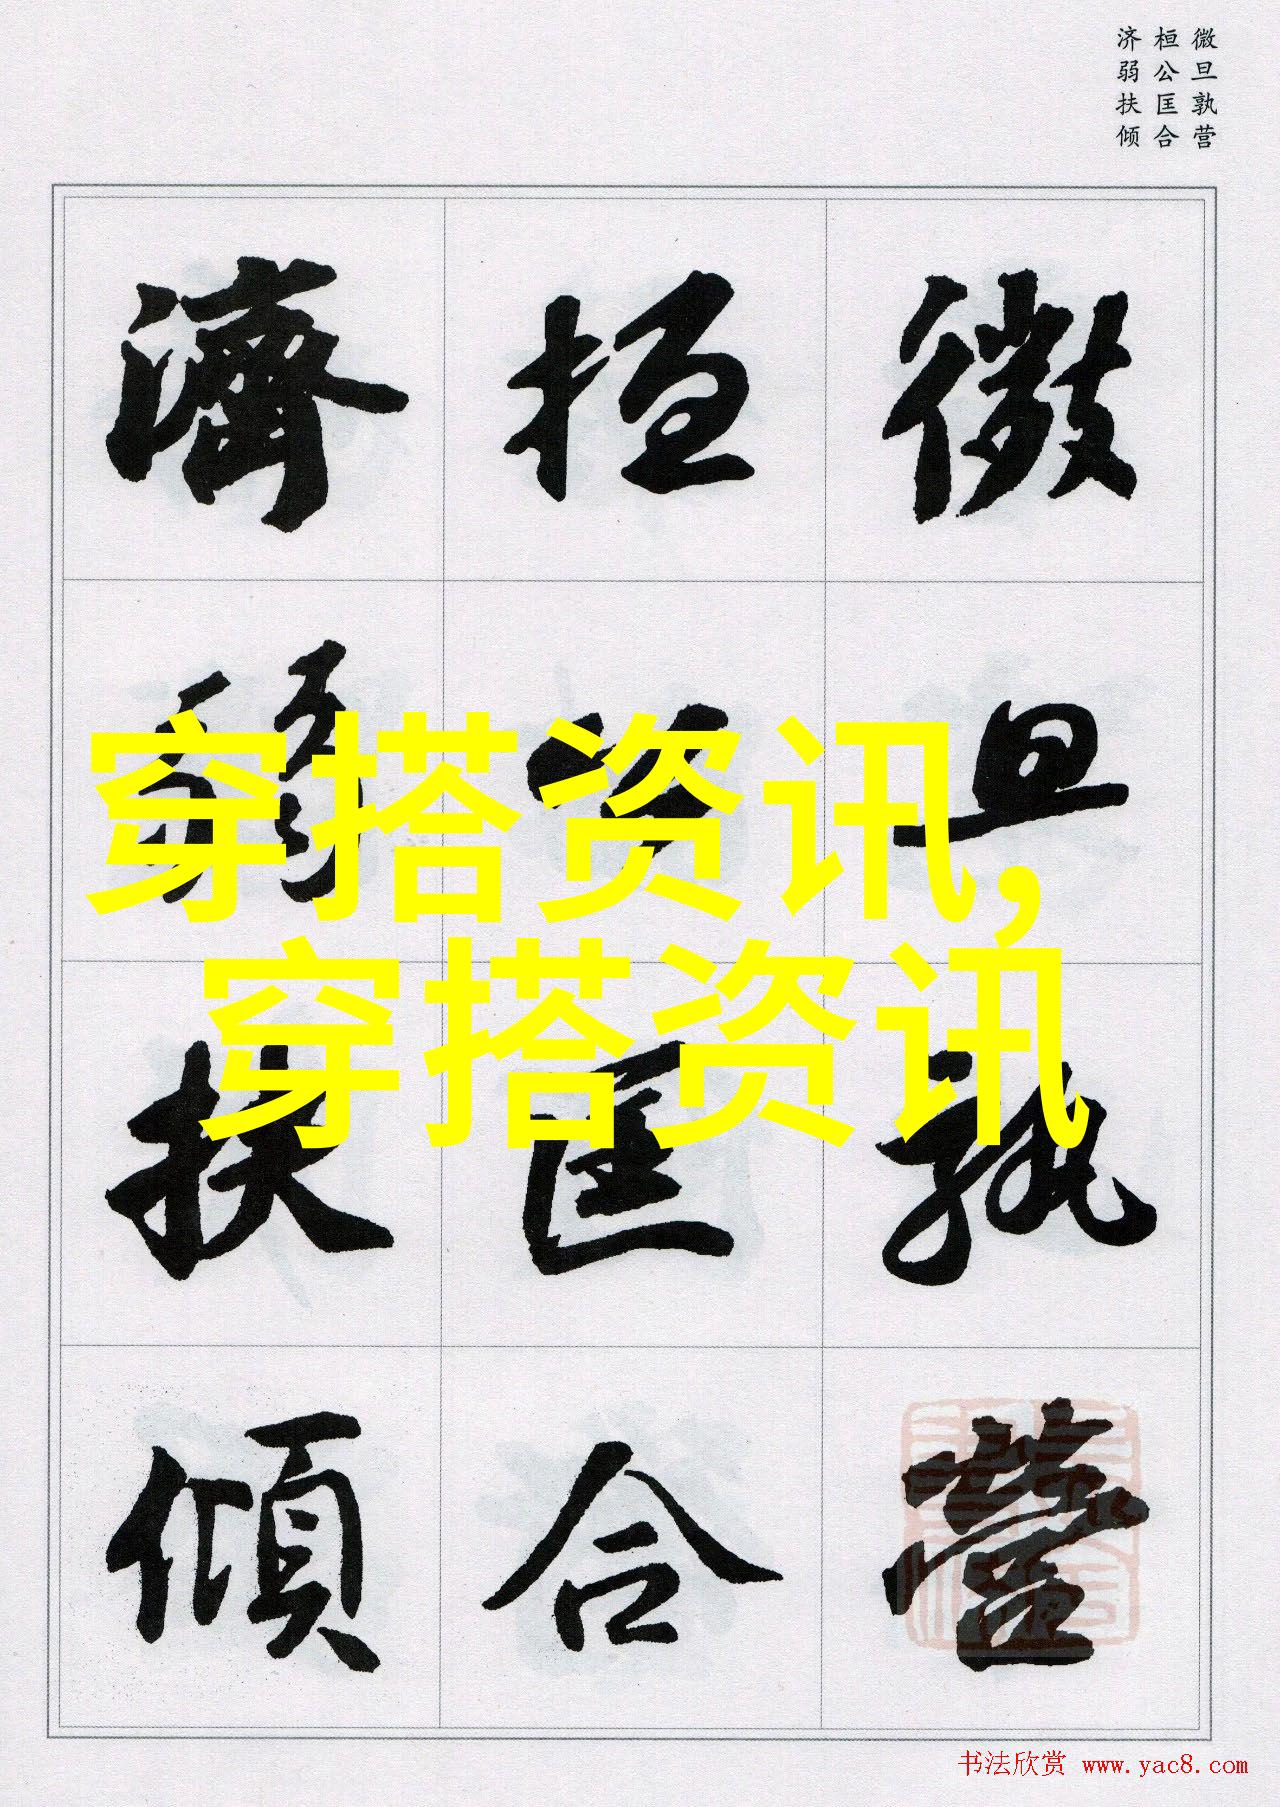 微旦孰营
桓公匡合
济弱扶倾
微旦孰營
桓公匡合
濟弱扶傾
穿搭资讯,
穿搭资讯
书法欣赏 www.yac8.com